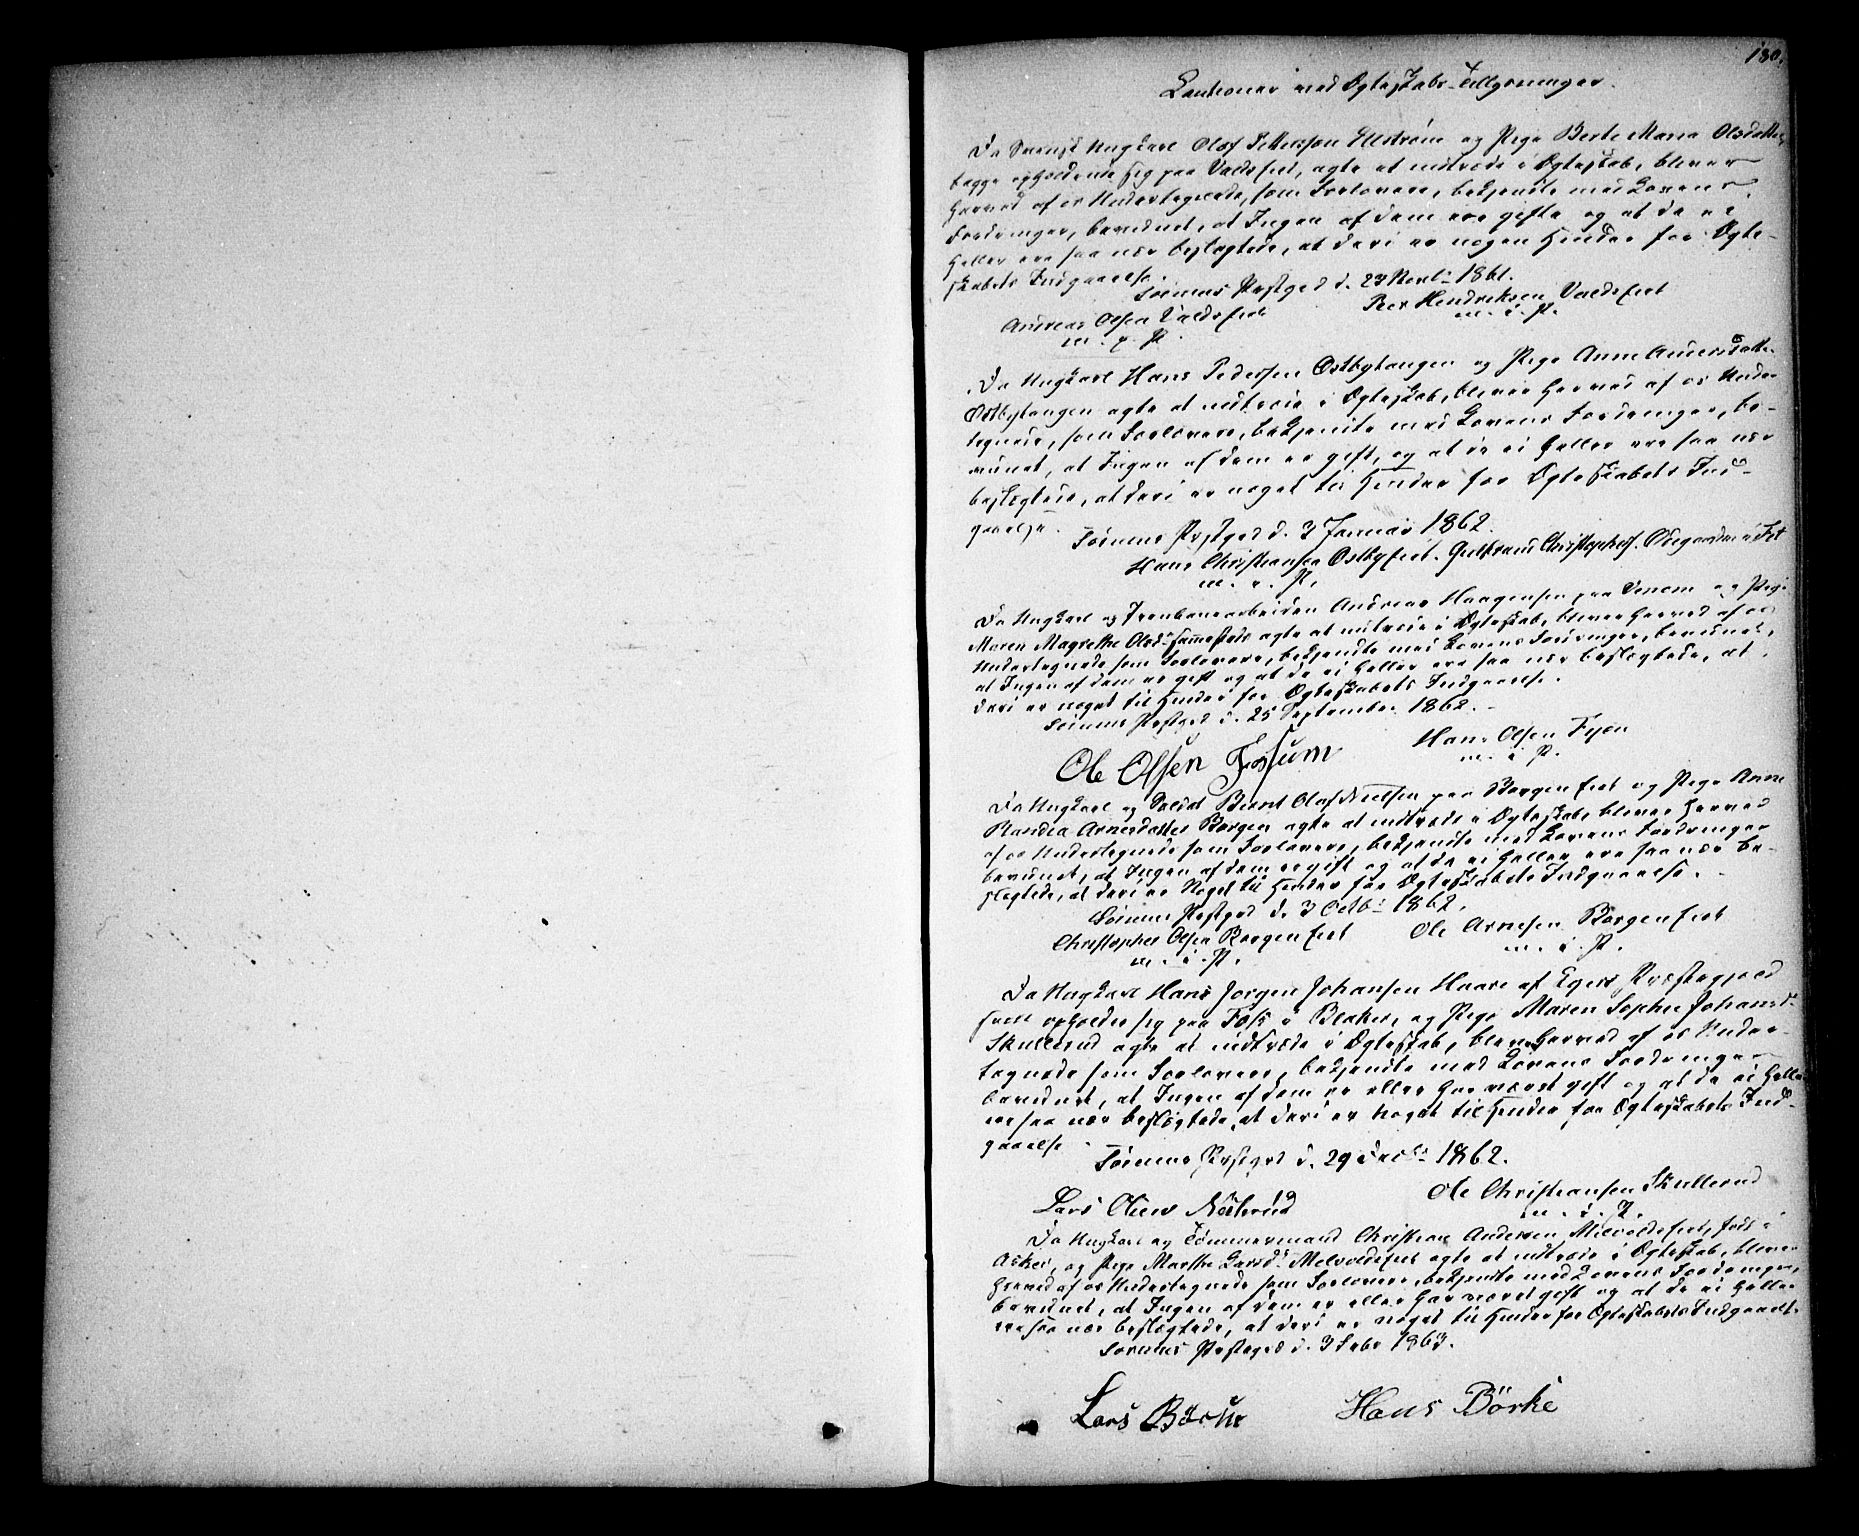 180.
Cautioner ved Ægteskabs-Tillysninger.
Da Svensk Ungkarl Olof Pettersson Ellström og Pige Berte Maria Olsdatter,
begge opholdende sig paa Valdsfiet, agte at indtræde i Ægteskab, bliver
herved af os Undertegnede, som Forlovere, bekjendte med Lovens
Fordringer, bevidnet, at Ingen af dem ere gifte og at de ei
heller ere saa nær beslægtede, at deri er nogen Hinder for Ægte-
skabets Indgaaelse.
Sörums Præstegd d. 23 Novb. 1861.
Andreas Olsen Valdsfiet Peer Hendriksen Valdsfiet
m. p. P. m. i. P.
Da Ungkarl Hans Pedersen Ostbytangen og Pige Anne Andersdatter
Ostbytangen agte at indtræde i Ægteskab, bliver herved af os Under-
tegnede, som Forlovere, bekjendte med Lovens Fordringer, be-
vidnet, at Ingen af dem er gift, og at de ei heller ere saa nær
beslægtede, at deri er noget til Hinder for Ægteskabets Ind-
gaaelse.
Sörums Præstegd d. 3 Januar 1862.
Hans Christiansen Ostbyfiet. Gulbrand Christophers. Ödegaarden i Fet
m. i. P.
Da Ungkarl og Jernbanearbeider Andreas Haagensen paa og Pige
Maren Magrethe Olsd. sammesteds agte at indtræde i Ægteskab, bliver herved af os
Undertegnede som Forlovere, bekjendte med Lovens Fordringer, bevidnet,
at Ingen af dem er gift og at de ei heller ere saa nær beslægtede, at
deri er noget til Hinder for Ægteskabets Indgaaelse.
Sörums Præstegd d. 25 September 1862.
Ole Olsen Fossum Hans Olsen
m. i. P.
Da Ungkarl og Soldat Bernt Olaf Nielsen paa Borgenfiet og Pige Anne
Randea Arnesdatter Borgen agte at indtræde i Ægteskab, bliver herved
af os Undertegnede som Forlovere, bekjendte med Lovens Fordringer
bevidnet, at Ingen af dem er gift og at de ei heller ere saa nær be-
slægtede, at deri er Noget til Hinder for Ægteskabets Indgaaelse.
Sörums Præstegd d. 3 Octb. 1862.
Christopher Olsen Borgenfiet Ole Arnesen Borgenfiet
m. i. P. m. i. P.
Da Ungkarl Hans Jorgen Johansen Haare af Egers Præstegjeld
som opholder sig paa Foss i Blaker, og Pige Maren Sophie Johansd.
Skullerud agte at indtræde i Ægteskab, bliver herved af os Under-
tegnede som Forlovere, bekjendte med Lovens Fordringer
bevidnet, at Ingen af dem er eller har været gift og at de ei heller
ere saa nær beslægtede, at deri er noget til Hinder for Ægteskabets Ind-
gaaelse.
Sörums Præstegd d. 29 Decbr 1862.
Lars Olsen Ole Christiansen Skullerud
m. i. P.
Da Ungkarl og Tømmermand Christian Andersen Melvoldsfiet, født i
Asker, og Pige Marthe Larsd. Melvoldsfiet agte at indtræde i Ægteskab, bliver
herved af os Undertegnede som Forlovere, bekjendte med Lovens Fordringer,
bevidnet, at Ingen af dem er eller har været gift og at de ei heller
ere saa nær beslægtede, at deri er noget til Hinder for Ægteskabets Indgaaelse.
Sörums Præstegd d. 3 Febr 1863.
Lars Hans Börke